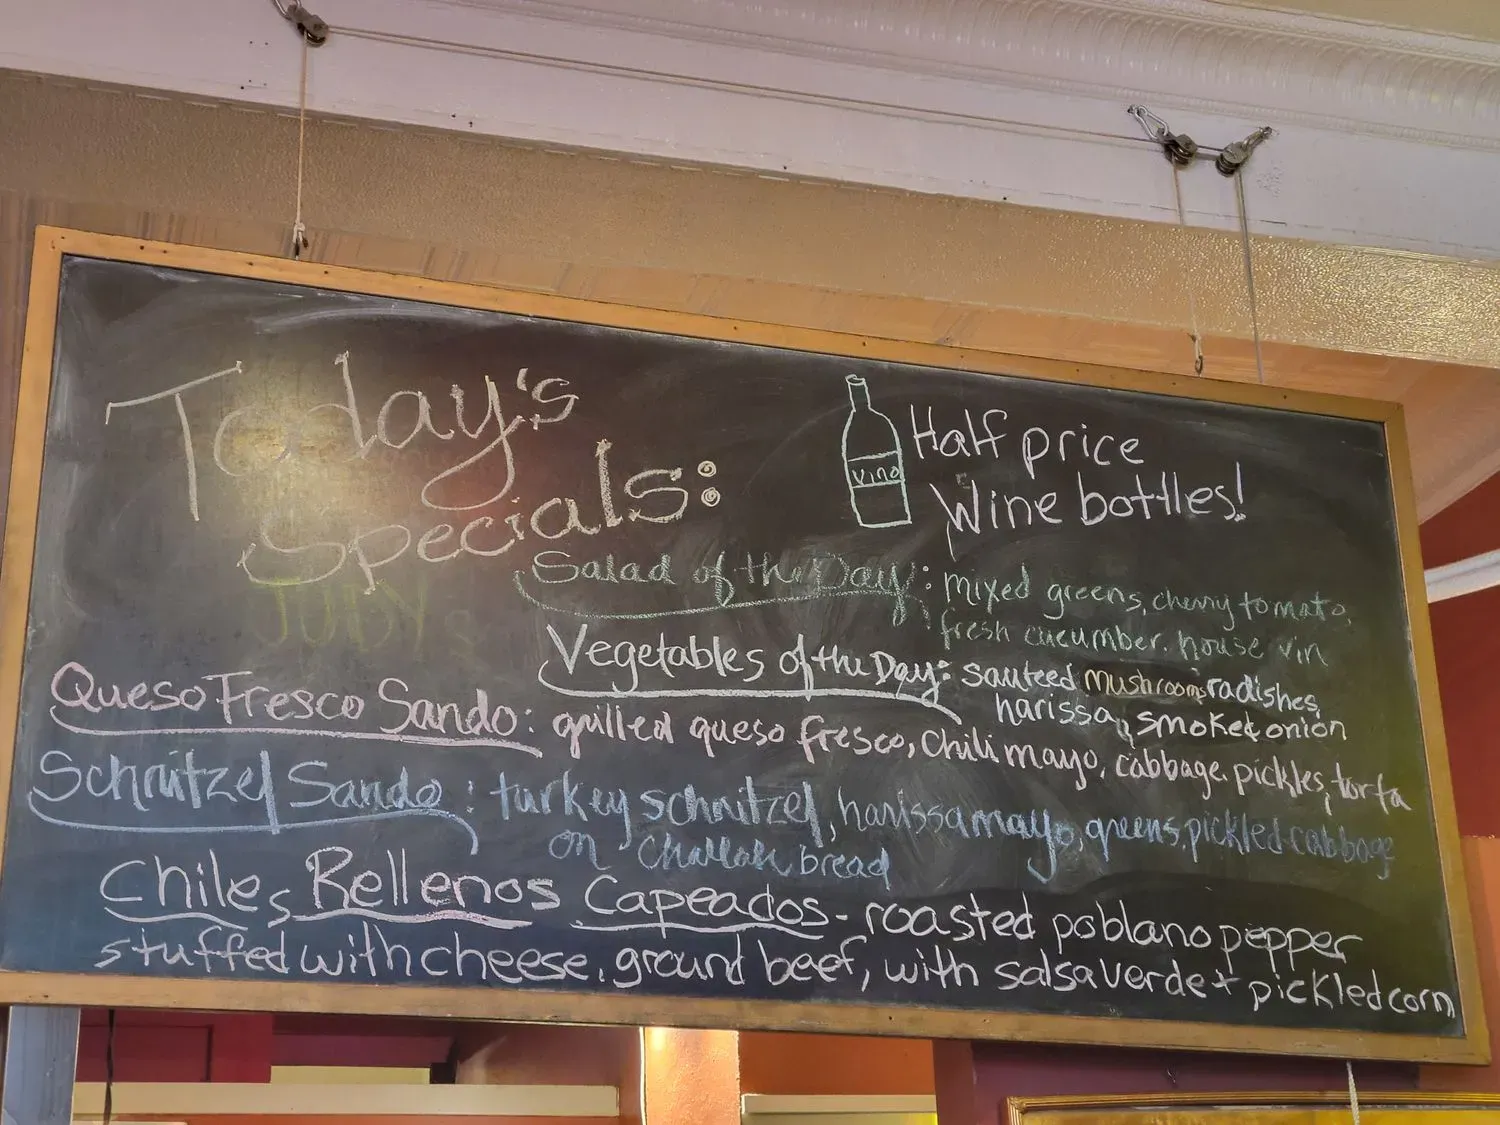 Today's
Specials:
vino
Half price
Wine bottles!
JUDY's
Salad of the Day: mixed greens, cherry tomato,
fresh cucumber. house vin
Vegetables of the Day: sauteed mushrooms radishes,
harissa, smoked onion
Queso Fresco Sando: grilled queso fresco, Chili mayo, cabbage, pickles, torta
Schnitzel Sando: turkey schnitzel, harissa mayo, greens, pickled cabbage
on Challah bread
Chiles Rellenos Capeados - roasted poblano pepper
stuffed with cheese, ground beef, with salsa verde + pickled corn